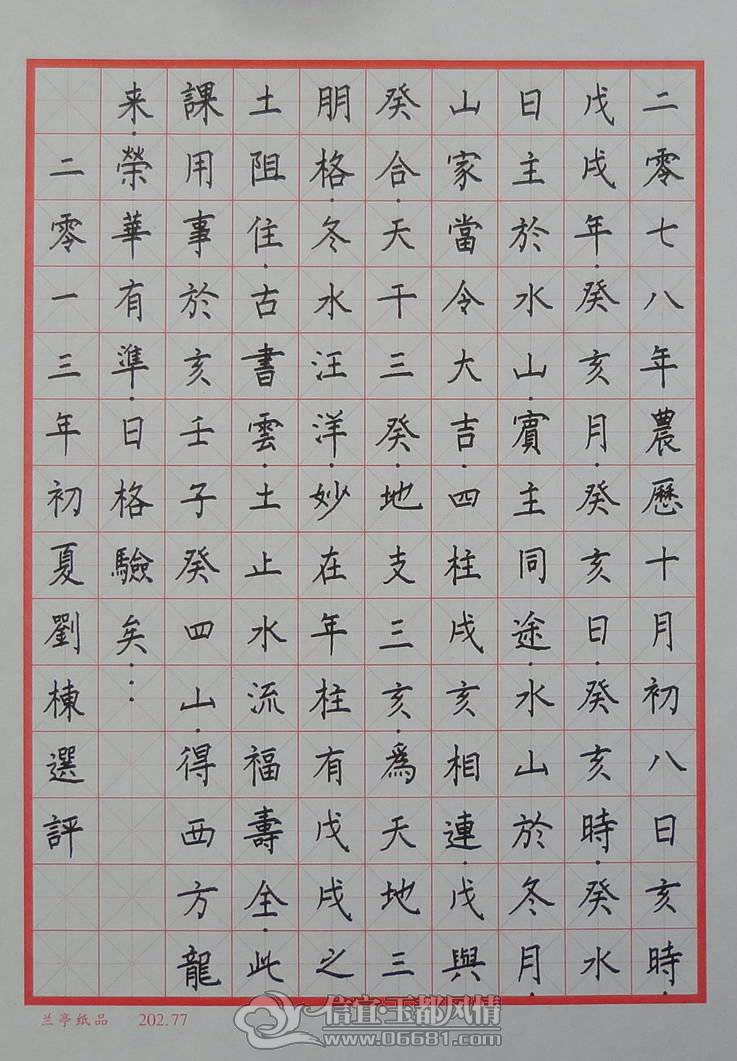 二零七八年農曆十月初八日亥時.
戊戌年.癸亥月.癸亥日.癸亥時.癸水
日主於水山.賓主同途.水山於冬月.
山家當令大吉.四柱戌亥相連.戊與
癸合.天干三癸.地支三亥.為天地三
朋格.冬水汪洋.妙在年柱有戊戌之
土阻住.古書雲.土止水流福壽全.此
課用事於亥壬子癸四山.得西方龍
来.榮華有準.日格驗矣...
二零一三年初夏劉棟選評
兰亭纸品 202.77
信宜·玉都风情
www.06681.com